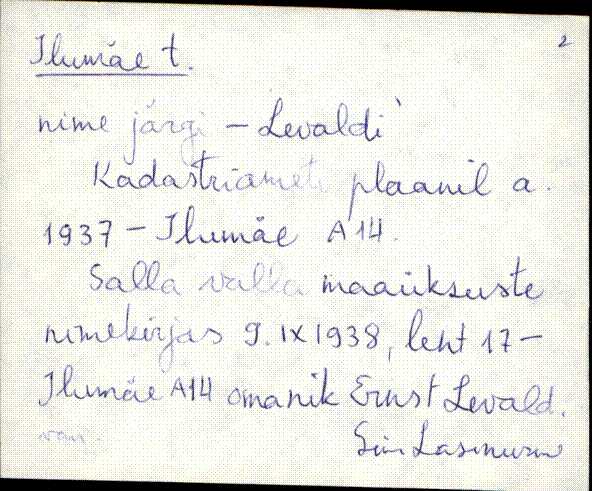 Ilumäe t. 2
nime järgi – Levaldi
Kadastriameti plaanil a.
1937 – Ilumäe A14.
Salla valla maaüksuste
nimekirjas 9. IX 1938, leht 17 –
Ilumäe A14 omanik Ernst Levald.